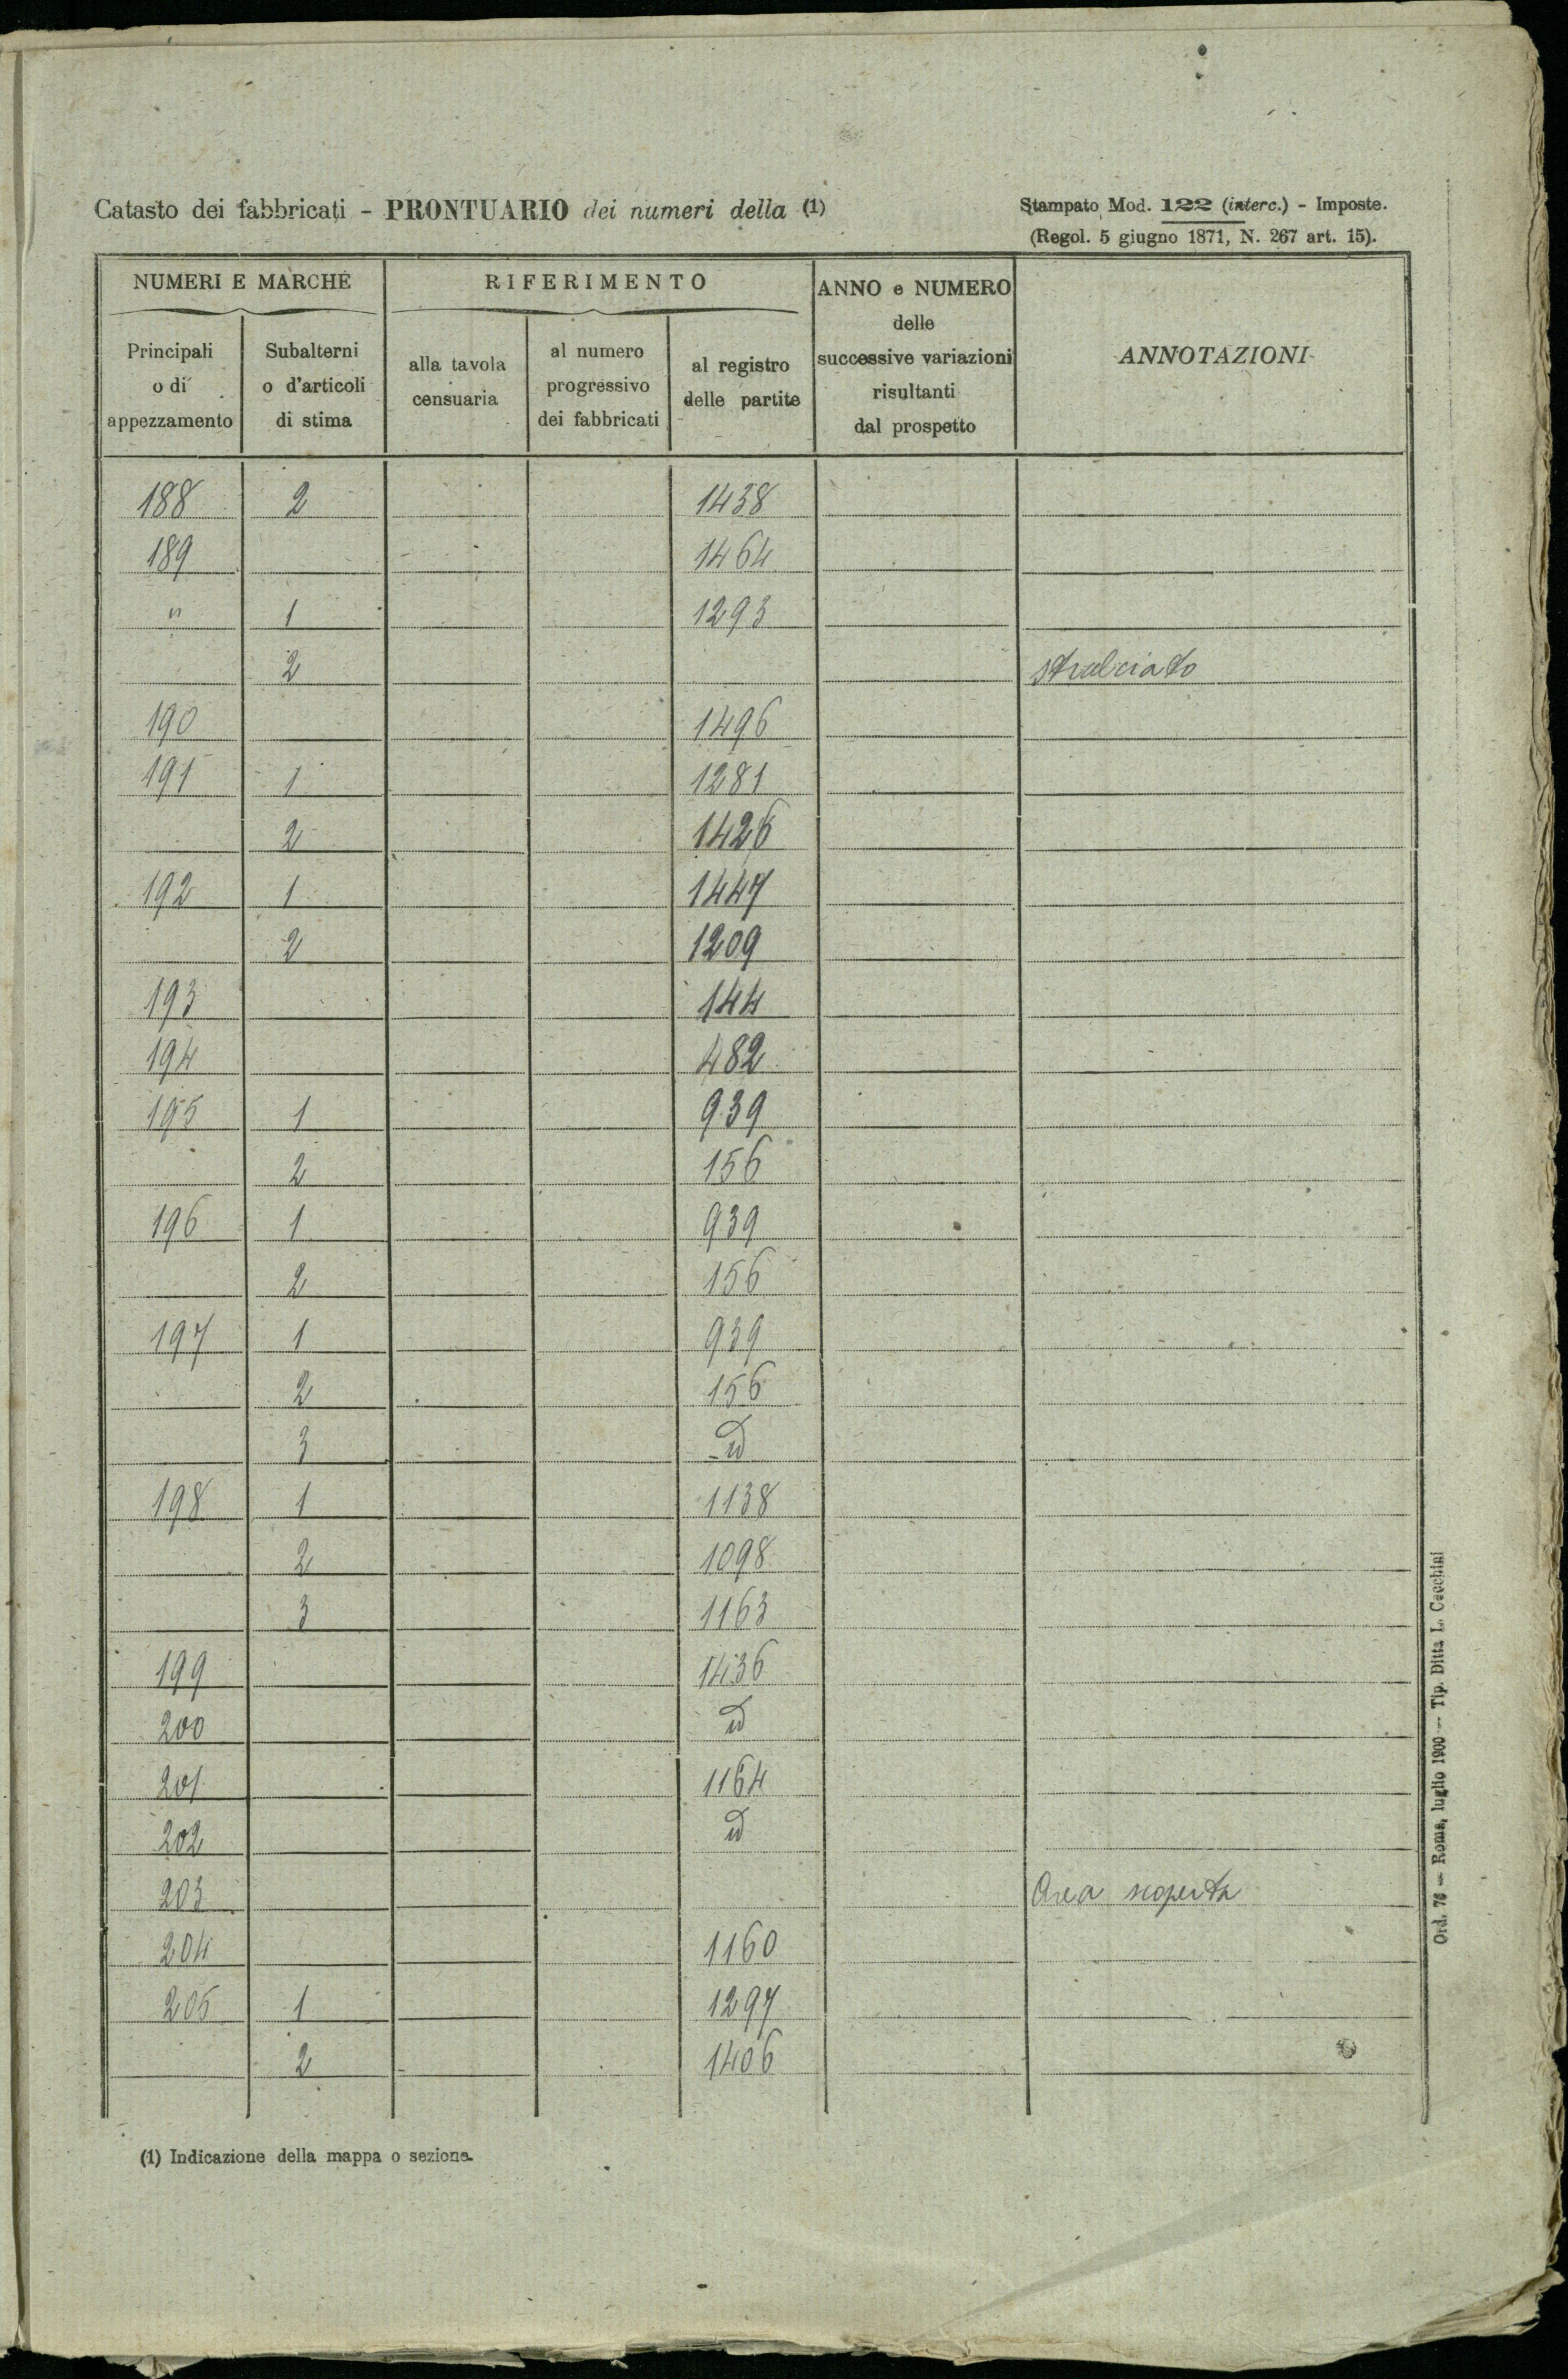 Catasto dei fabbricati - PRONTUARIO dei numeri della (1)
Stampato Mod. 122 (interc.) - Imposte.
(Regol. 5 giugno 1871, N. 267 art. 15).
NUMERI E MARCHE
RIFERIMENTO
ANNO e NUMERO
delle
successive variazioni
risultanti
dal prospetto
ANNOTAZIONI
Principali
o di
appezzamento
Subalterni
o d'articoli
di stima
alla tavola
censuaria
al numero
progressivo
dei fabbricati
al registro
delle partite
188 2 1438
189 1464
" 1 1293
2 stralciato
190 1496
191 1 1281
2 1426
192 1 1447
2 1209
193 144
194 482
195 1 939
2 156
196 1 939
2 156
197 1 939
2 156
3 id
198 1 1138
2 1098
3 1163
199 1436
200 id
201 1164
202 id
203 Area scoperta
204 1160
205 1 1297
2 1406
(1) Indicazione della mappa o sezione.
Ord. 76 — Roma, luglio 1900 — Tip. Ditta L. Cecchini